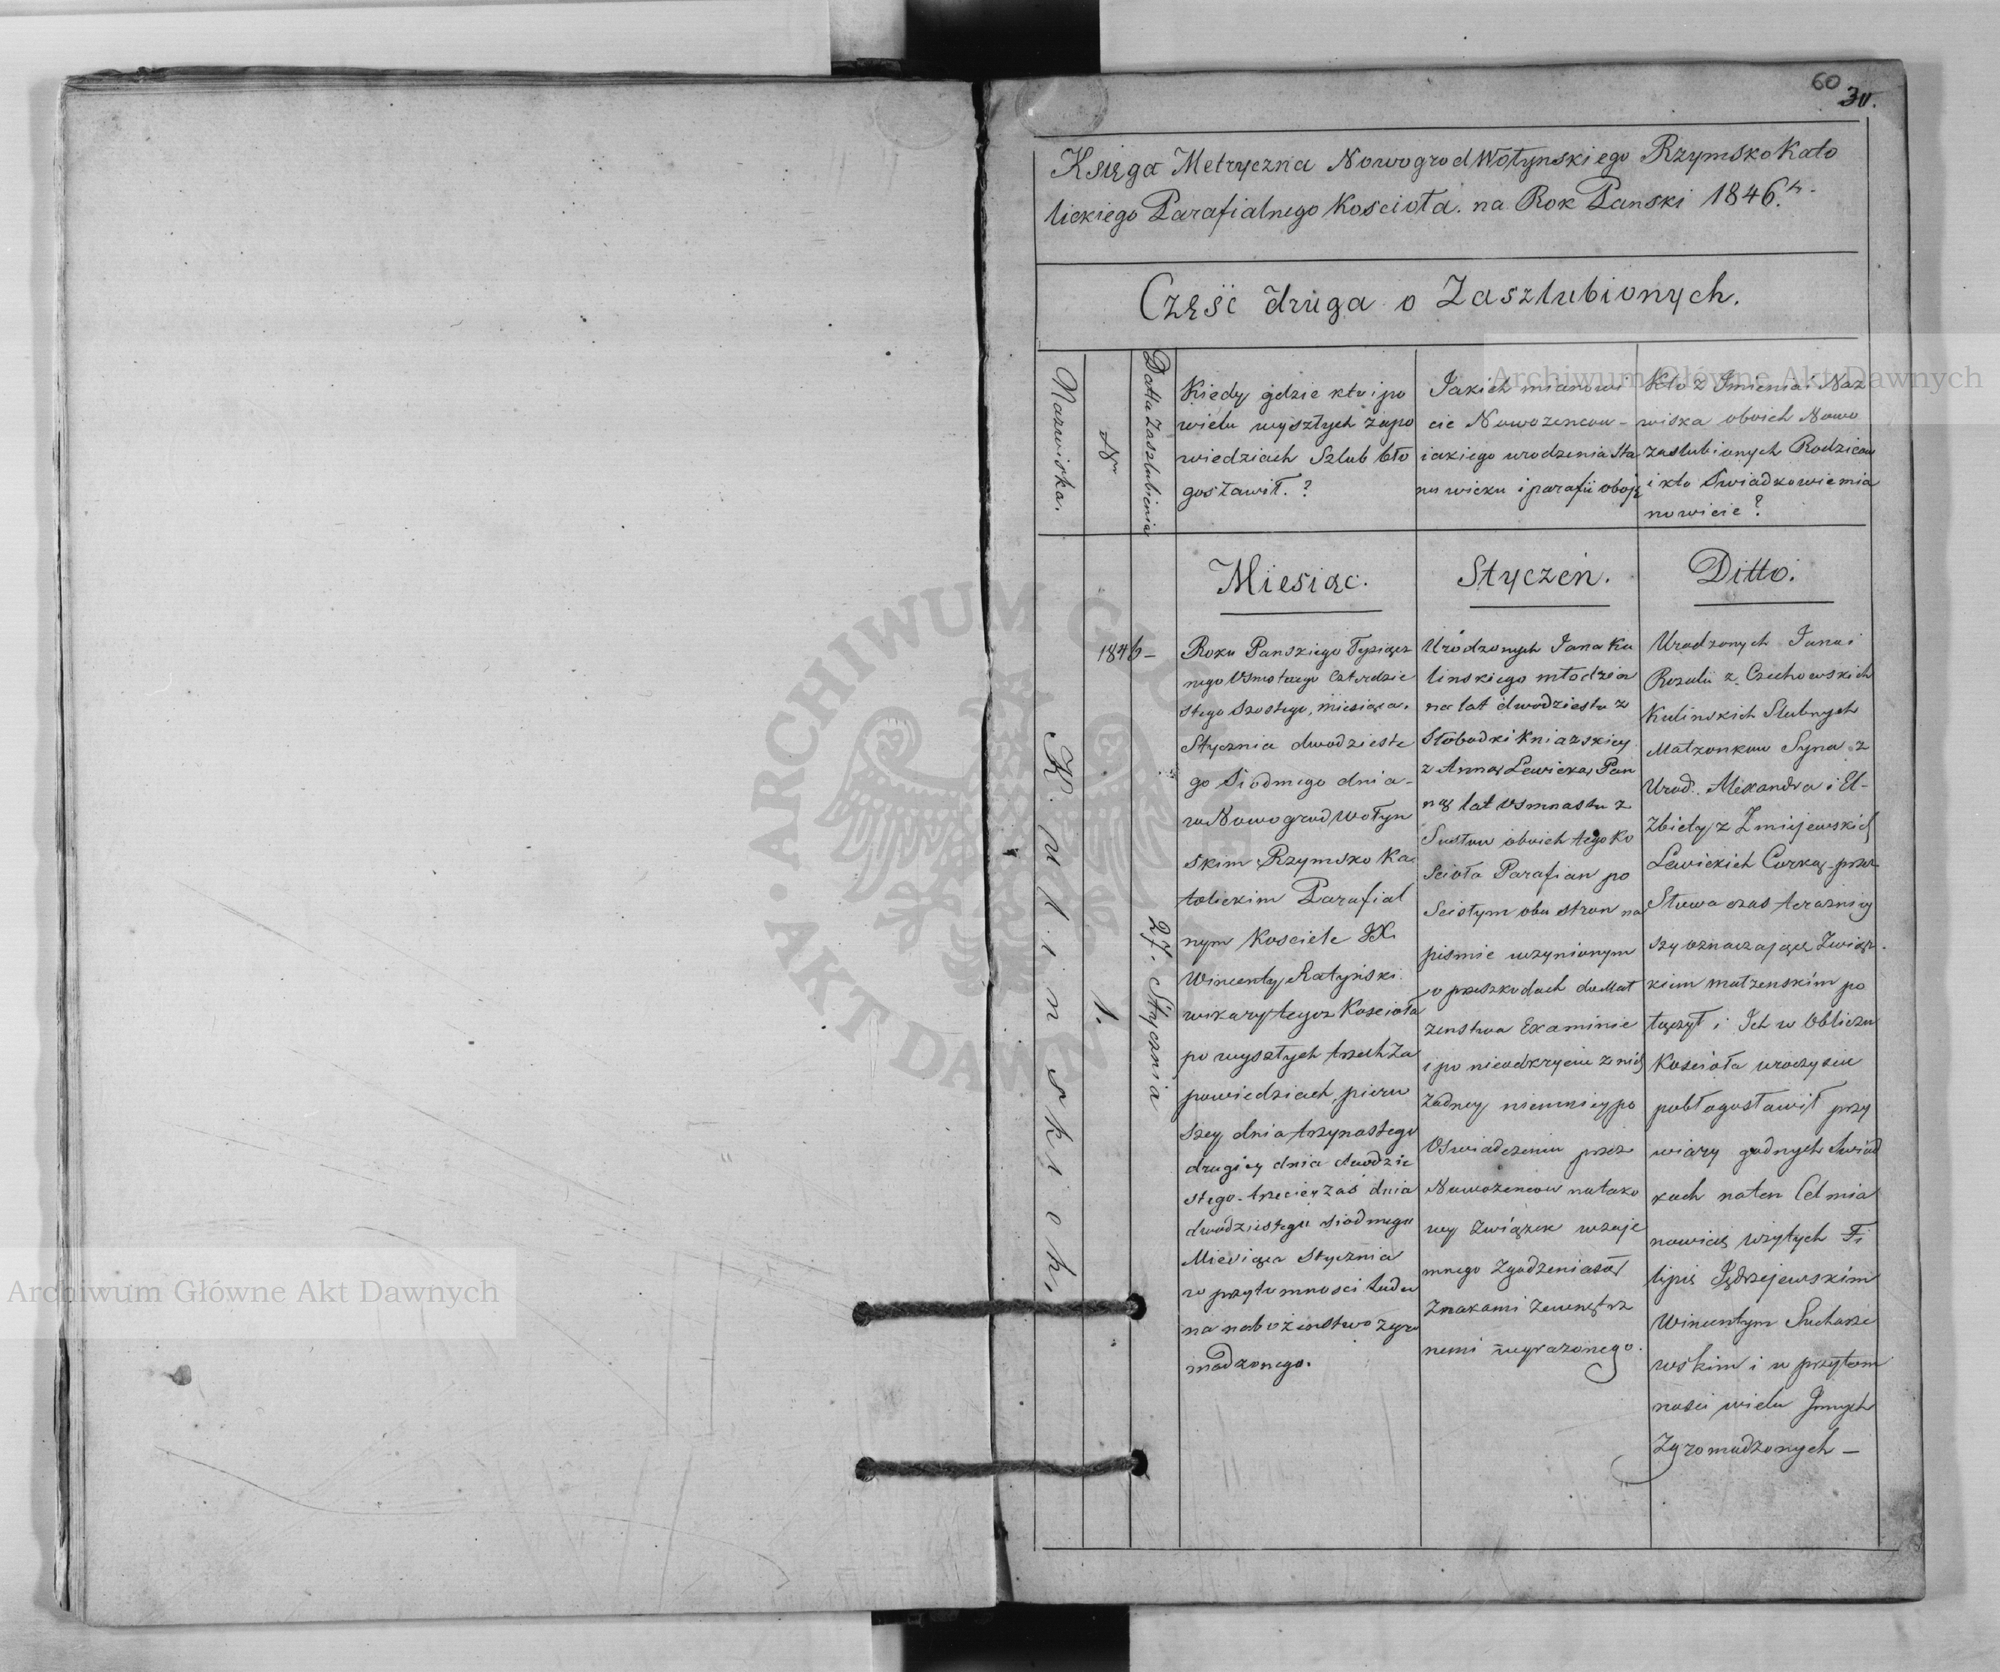 60
30.
Księga Metryczna NowogrodWołynskiego RzymskoKato
lickiego Parafialnego Kościoła. na Rok Panski 1846.
Część druga o Zaszlubionych.
Nazwiska.
N
Datta Zaszlubienia
Kiedy gdzie kto i po
wielu wyszłych zapo
wiedziach Szlub bło
gosławił. ?
Jakich mianowi
cie Nowozencow -
i iakiego urodzenia Sta
nu wieku i parafii oboje
Kto z Imienia i Naz
wiska oboich Nowo
zaslubionych Rodzicow
i kto Swiadkowie mia
nowicie ?
Miesiąc.
Styczeń.
Ditto.
1846 -
Kulinskich,
1.
27. Stycznia
Roku Panskiego Tysiącz
nego Osmsetnego Czterdzie
stego Szostego, miesiąca.
Stycznia dwodzieste
go Siodmego dnia -
w NowogrodWołyn
skim Rzymsko Ka
tolickim Parafial
nym Kosciele JX.
Wincenty Ratyński
wikary tegoz Kościoła
po wyszłych trzech Za
powiedziach, pierw
szey dnia trzynastego
drugiey dnia dwodzie
stego. trzeciey zaś dnia
dwodziestego siodmego
Miesiąca Stycznia
w przytomnosci ludu
na nabożenstwo zgro
madzonego.
Urodzonych Jana Ku
linskiego młodzian
na lat dwodziestu z
Słobodki Kniazskiey
z Anną Lewicką Pan
ną lat Osmnastu z
Susłow oboich tego Ko
scioła Parafian po
Scisłym obu stron na
pismie uczynionym
o przeszkodach do Mał
zenstwa Examinie
i po nieodkryciu z nich
Żadney, niemniey po
Oswiadczeniu przez
Nowożencow na tako
wy Związek wzaje
mnego Zgodzenia się
Znakami Zewnętrz
nemi wyrażonego.
Urodzonych Jana i
Rozalii z Czechowskich
Kulinskich Slubnych
Małzonkow Syna z
Urod. Alexandra i El-
zbiety z Zmiejewskich
Lewickich Corką - przez
Słowa czas terazniey
szy oznaczające Związ-
kiem małzenskim po
łączył i Ich w Obliczu
Kościoła uroczyscie
pobłogosławił przy
wiary godnych Swiad
kach na ten Cel mia
nowicie wzytych Fi
lipie Jędrzejewskim
Wincentym Sucharze
wskim i w przytom
nosci wielu Jnnych
Zgromadzonych -
Archiwum Główne Akt Dawnych
Archiwum Główne Akt Dawnych
ARCHIWUM GŁÓWNE
AKT DAWNYCH